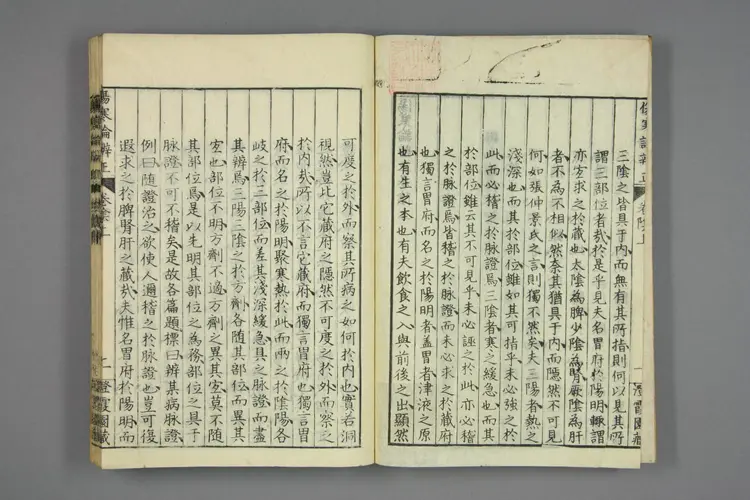 三陰之皆具于内而無有其所指則何以見其所
謂三部位者哉於是乎見夫名胃府於陽明輙謂
亦宜求之於藏也太陰為脾少陰為腎厥陰為肝
者不為不相似然奈其猶具于内而隱然不可見
何如張仲景氏之言則獨不然矣夫三陽者熱之
淺深也而其於部位雖如其可指乎未必強之於
此而必稽之於脉證焉三陰者寒之緩急也而其
於部位雖云其不可見乎未必誣之於此亦必稽
之於脉證焉皆稽之於脉證而未必求之於藏府
也獨言胃府而名之於陽明者蓋胃者津液之原
也有生之本也有夫飲食之入與前後之出顯然
可度之於外而察其所病之如何於内也實若洞
視然豈比它藏府之隱然不可度之於外而察之
於内哉所以不言它藏府而獨言胃府也獨言胃
府而名之於陽明聚寒熱於此而兩之於陰陽各
岐之於三部位而差其淺深緩急具之脉證而盡
其辨焉三陽三陰之於方劑各隨其部位而異其
宏也部位不明方劑不適方劑之異其宏莫不随
其部位焉是以先明其部位之為務部位之具于
脉證不可不稽矣是故各篇題標曰辨某病脉證
例曰随證治之欲使人遍稽之於脉證也豈可復
遐求之於脾腎肝之藏哉夫惟名胃府於陽明而
傷寒論辨正
澄霞園藏